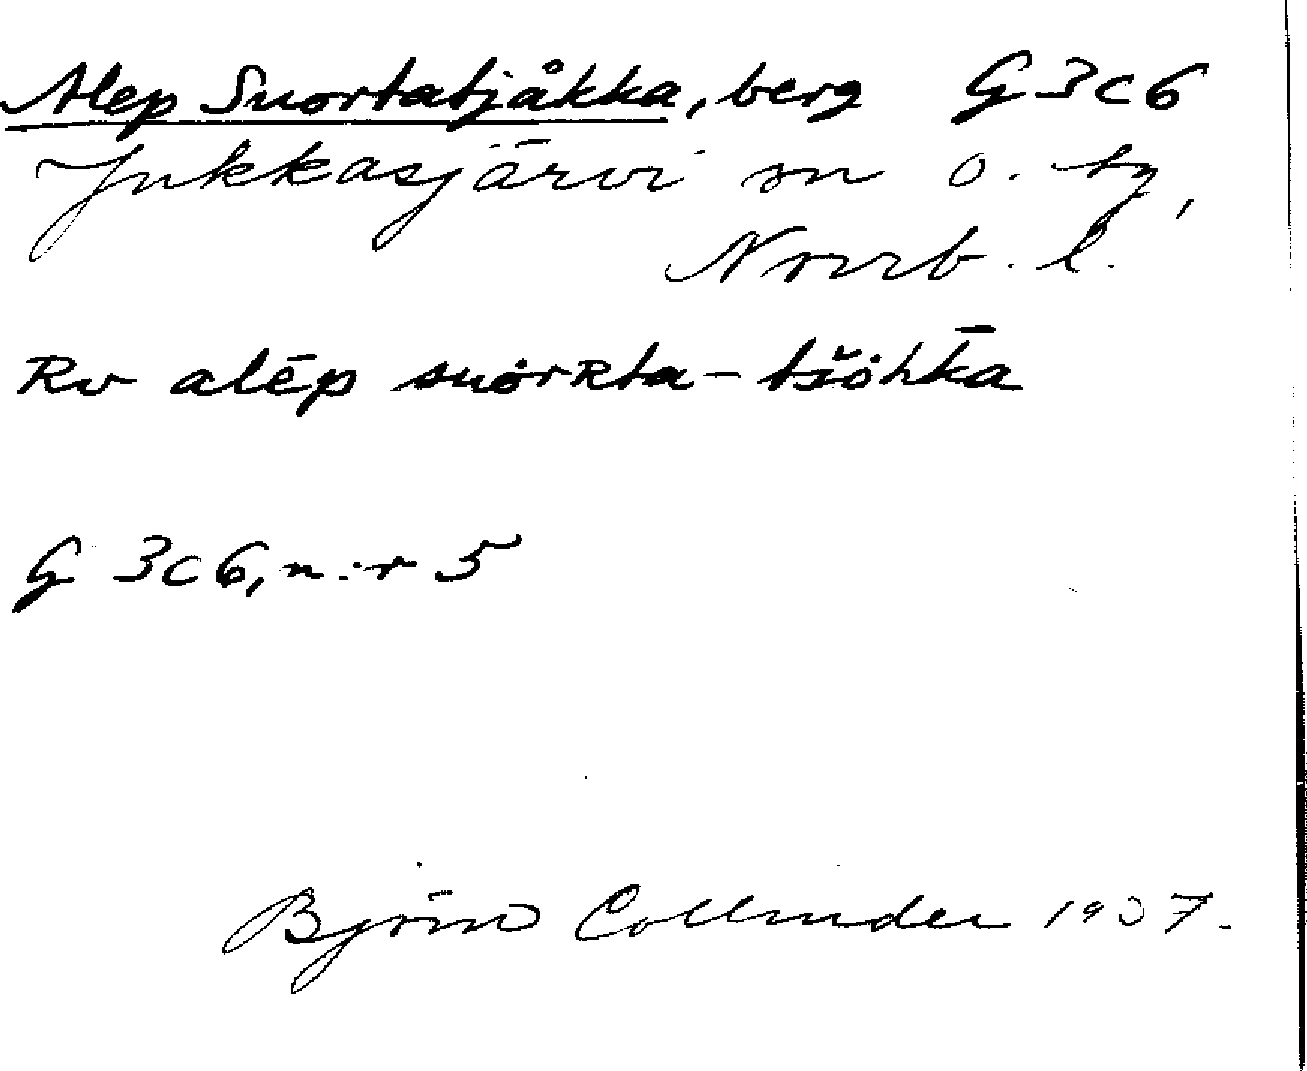 Alep Suortatjåkka, berg G3c6
Jukkasjärvi sn o. tg,
Norrb. l.
Rv alēp suȯrRta-tšȯh̄ka
G 3c6, n:r 5
Björn Collinder 1937.